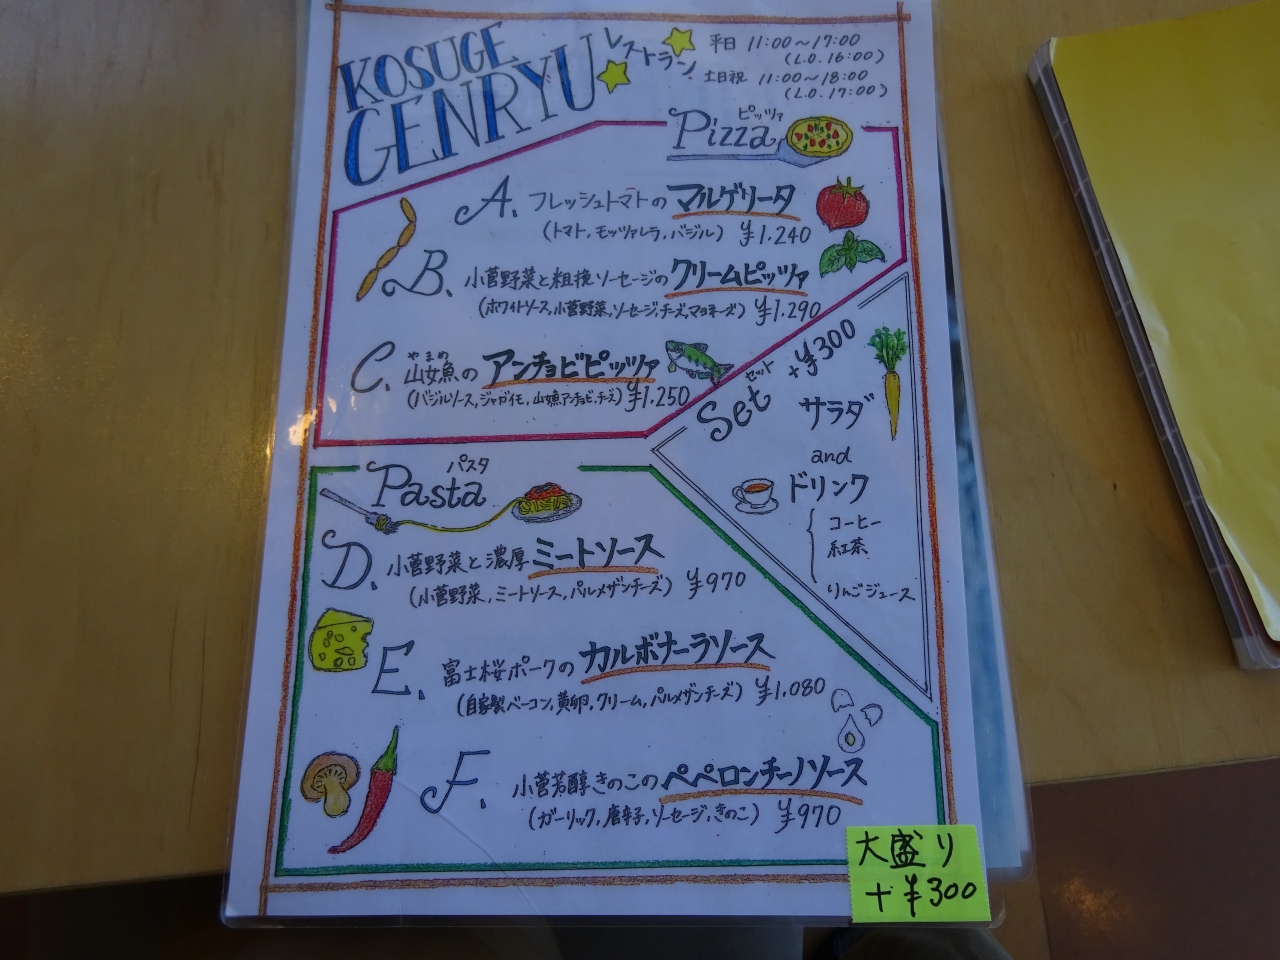 KOSUGE
GENRYU
レストラン
平日 11:00～17:00
(L.O.16:00)
土日祝 11:00～18:00
(L.O.17:00)
ピッツァ
Pizza
A. フレッシュトマトの マルゲリータ
(トマト, モッツァレラ, バジル) ¥1.240
B. 小菅野菜と粗挽ソーセージの クリームピッツァ
(ホワイトソース, 小菅野菜, ソーセージ, チーズ, マヨネーズ) ¥1.290
やまめ
C. 山女魚の アンチョビピッツァ
(バジルソース, ジャガイモ, 山魚アンチョビ, チーズ) ¥1.250
セット
Set +¥300
サラダ
and
ドリンク
コーヒー
紅茶
りんごジュース
パスタ
Pasta
D. 小菅野菜と濃厚 ミートソース
(小菅野菜, ミートソース, パルメザンチーズ) ¥970
E. 富士桜ポークの カルボナーラソース
(自家製ベーコン, 黄卵, クリーム, パルメザンチーズ) ¥1.080
F. 小菅芳醇きのこの ペペロンチーノソース
(ガーリック, 唐辛子, ソーセージ, きのこ) ¥970
大盛り
+¥300